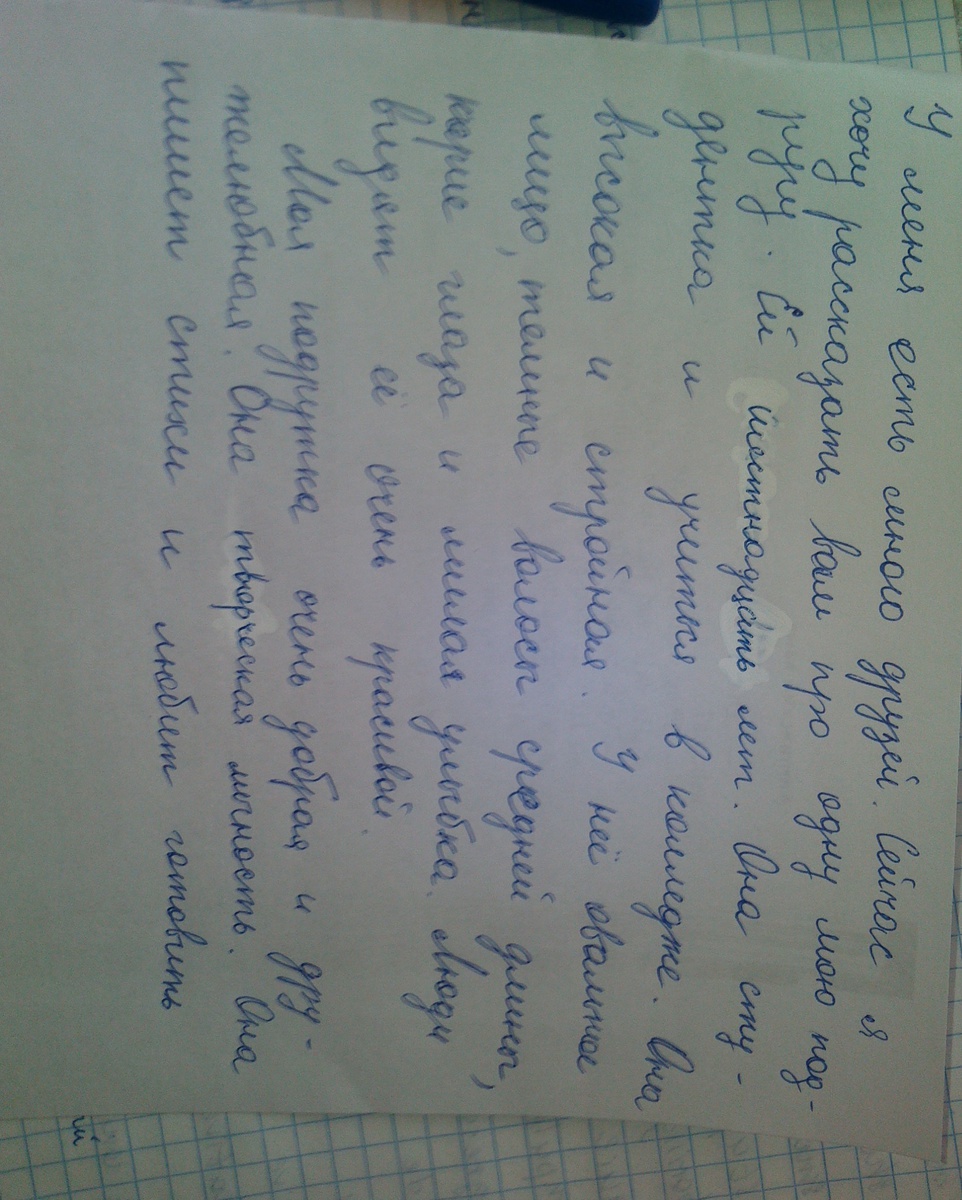 У меня есть много друзей. Сейчас я
хочу рассказать вам про одну мою под-
ругу. Ей шестнадцать лет. Она сту-
дентка и учится в колледже. Она
высокая и стройная. У неё овальное
лицо, темные волосы средней длины,
карие глаза и милая улыбка. Люди
видят её очень красивой.
Моя подружка очень добрая и дру-
желюбная. Она творческая личность. Она
пишет стихи и любит готовить